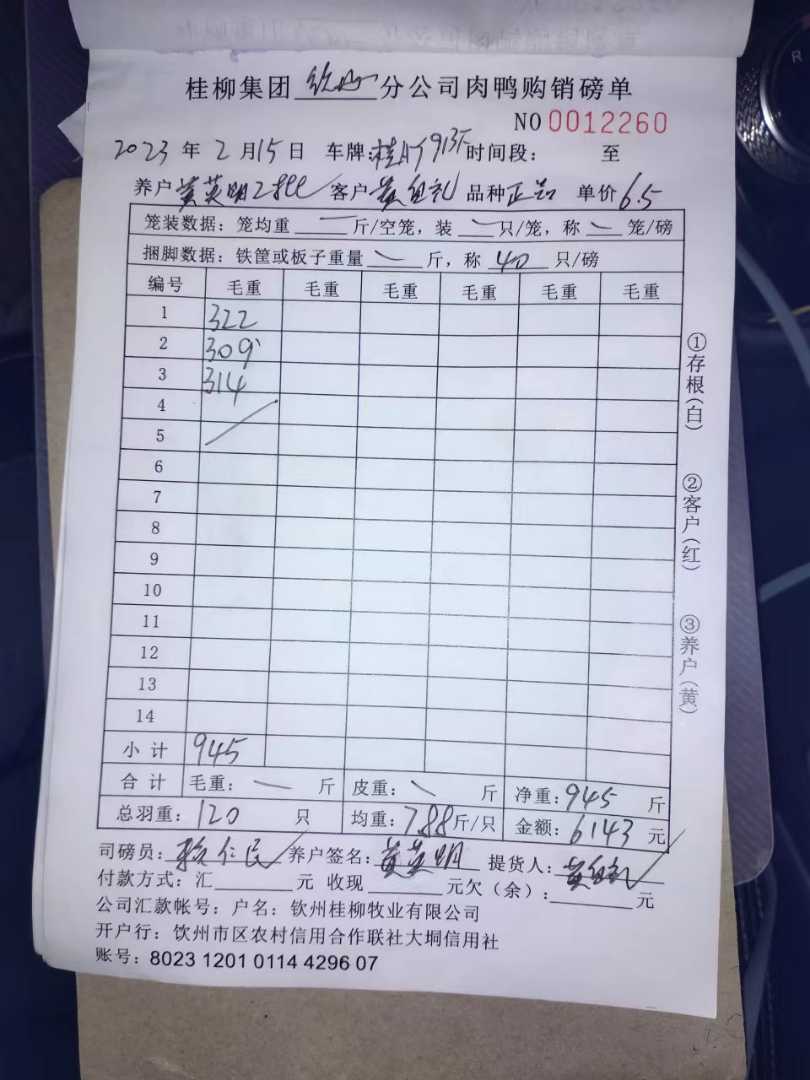 桂柳集团 钦州 分公司肉鸭购销磅单
NO 0012260
2023 年 2 月 15 日 车牌: 时间段: 至
养户 黄英明 2批 客户 品种 正品 单价 6.5
笼装数据: 笼均重 一 斤/空笼, 装 一 只/笼, 称 一 笼/磅
捆脚数据: 铁筐或板子重量 一 斤, 称 40 只/磅
编号 毛重 毛重 毛重 毛重 毛重 毛重
1 322
2 309
3 314
4
5
6
7
8
9
10
11
12
13
14
小计 945
合计 毛重: 一 斤 皮重: 一 斤 净重: 945 斤
总羽重: 120 只 均重: 7.88 斤/只 金额: 6143 元
司磅员: 养户签名: 黄英明 提货人:
付款方式: 汇 元 收现 元欠(余): 元
公司汇款帐号: 户名: 钦州桂柳牧业有限公司
开户行: 饮州市区农村信用合作联社大垌信用社
账号: 8023 1201 0114 4296 07
①存根(白)
②客户(红)
③养户(黄)